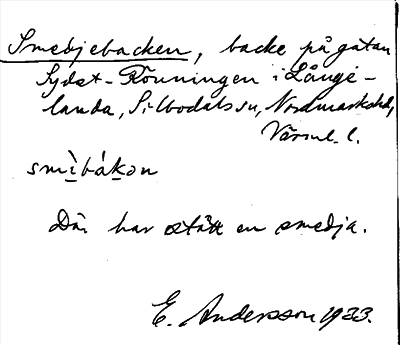 Smedjebacken, backe på gatan
Sydst-Rönningen i Långe-
landa, Silbodals sn, Nordmarks hd,
Värml. l.
smìbákon
Där har stått en smedja.
E. Andersson 1933.